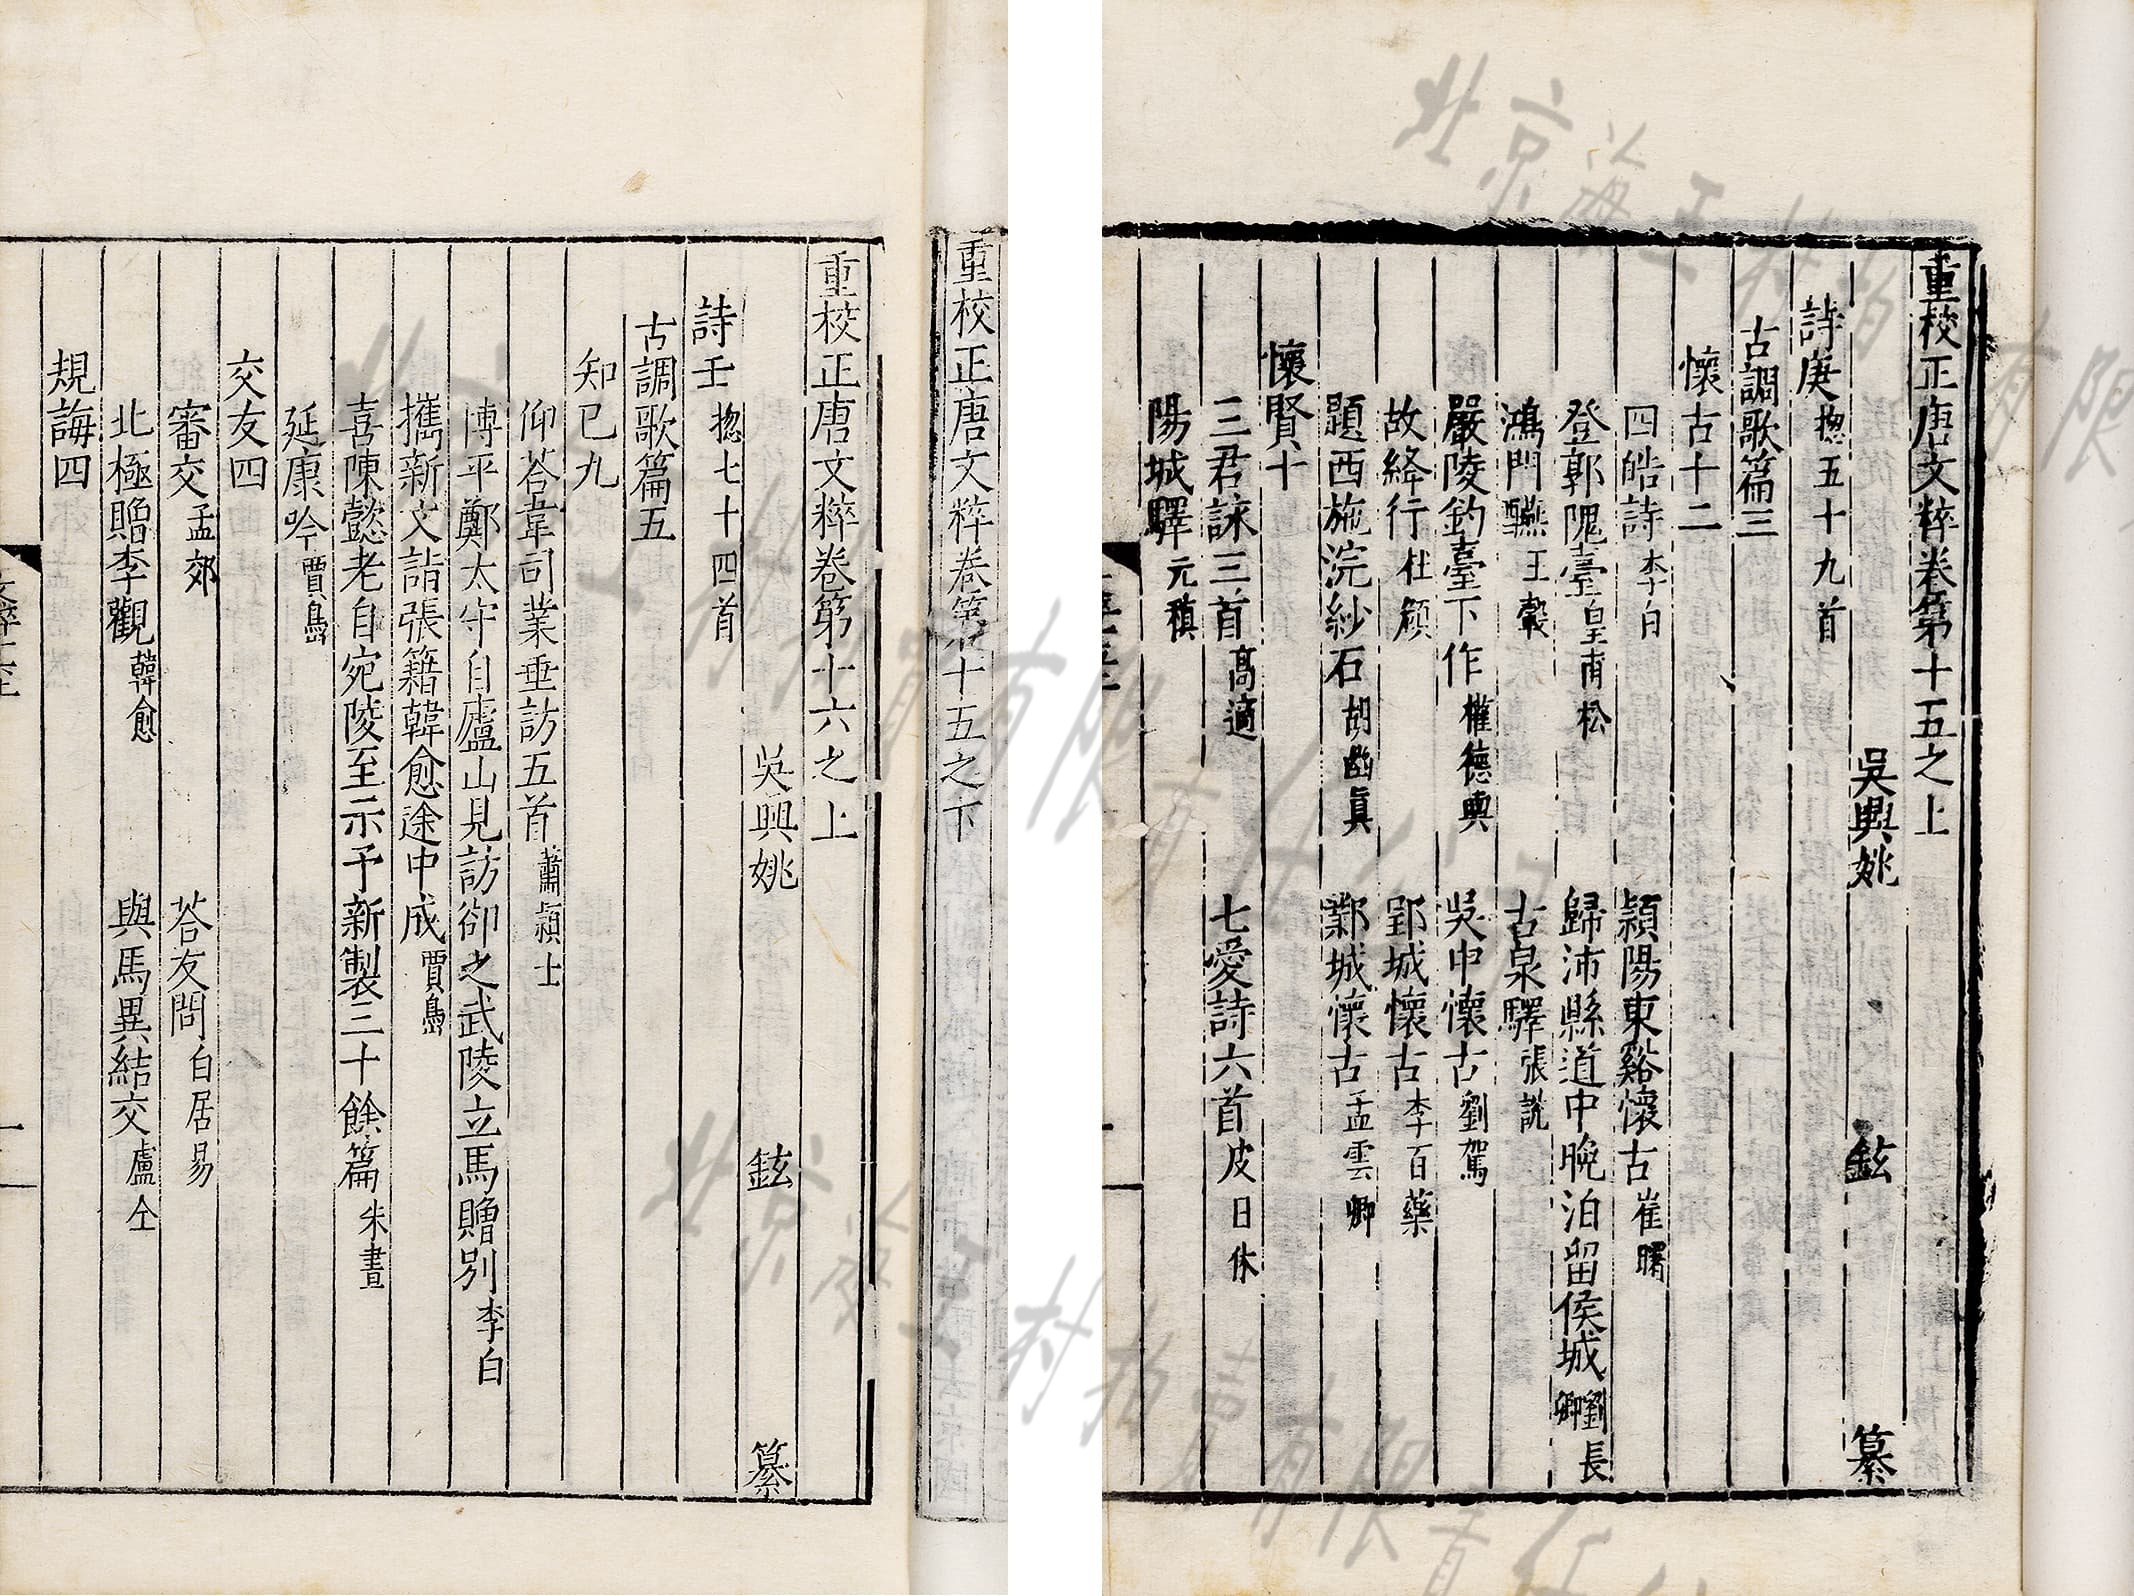 重校正唐文粹卷第十五之上
吳興姚 鉉 纂
詩庚 揔五十九首
古調歌篇三
懷古十二
四皓詩 李白 潁陽東谿懷古 崔曙
登郭隗臺 皇甫松 歸沛縣道中晚泊留侯城 劉長卿
鴻門讌 王轂 古泉驛 張說
嚴陵釣臺下作 權德輿 吳中懷古 劉駕
故絳行 杜頠 郢城懷古 李百藥
題西施浣紗石 胡幽貞 鄴城懷古 孟雲卿
懷賢十
三君詠三首 高適 七愛詩六首 皮日休
陽城驛 元稹
重校正唐文粹卷第十五之下
重校正唐文粹卷第十六之上
吳興姚 鉉 纂
詩壬 揔七十四首
古調歌篇五
知已九
仰荅韋司業垂訪五首 蕭潁士
博平鄭太守自廬山見訪卻之武陵立馬贈別 李白
攜新文詣張籍韓愈途中成 賈島
喜陳懿老自宛陵至示予新製三十餘篇 朱晝
延康吟 賈島
交友四
審交 孟郊 荅友問 白居易
北極贈李觀 韓愈 與馬異結交 盧仝
規誨四
北京海王村拍賣有限責任公司